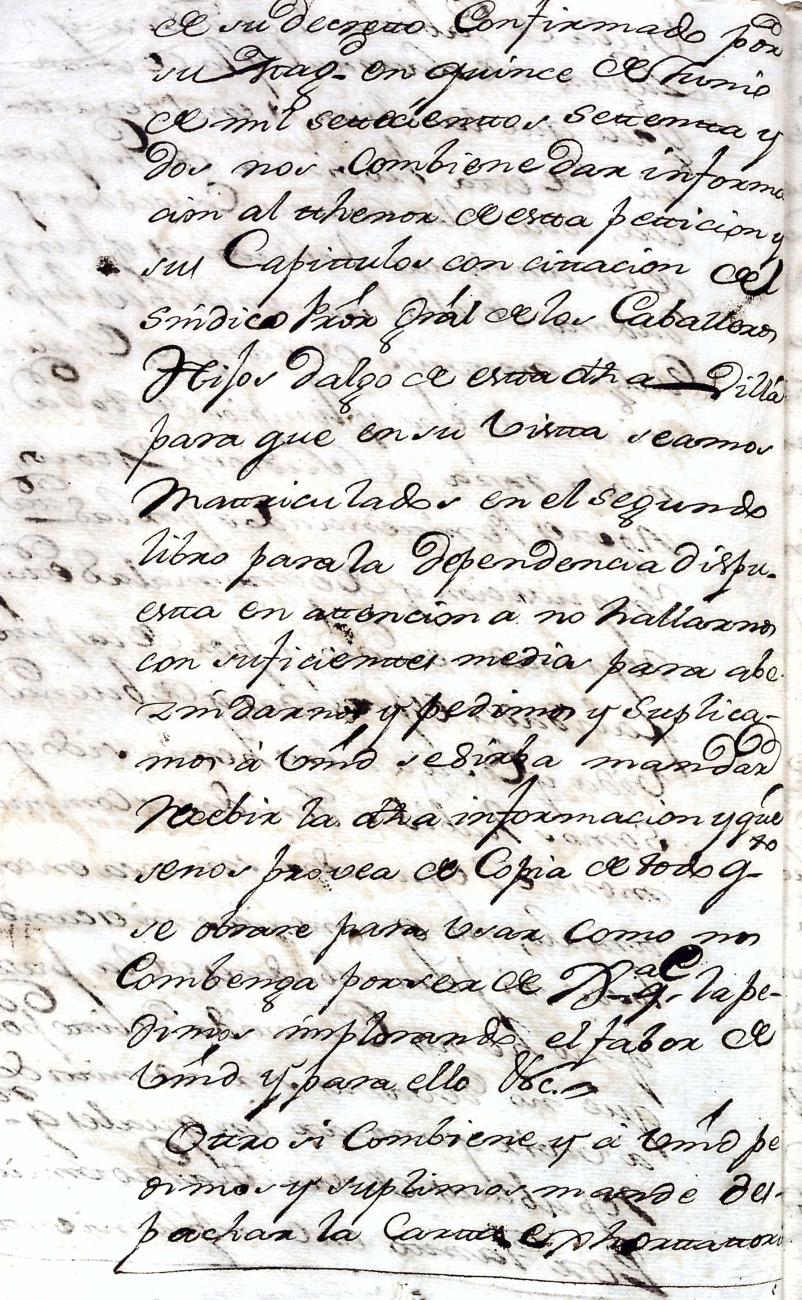 de su decretto Confirmado por
su Mag. en quince de Junio
de mil settecienttos settentta y
dos nos Combiene dar informa
cion al tthenor de estta petticion y
sus Capittulos con cittacion del
sindico Prôr Grâl de los Caballeros
Hijos dalgo de estta dha Villa
para que en su Vistta seamos
Mattriculados en el segundo
libro para la dependencia dispu-
estta en attencion a no hallarnos
con suficienttes medios para abe-
zindarnos y pedimos y suplica-
mos â Vmd se Sirba mandar
recebir la dha informacion y que
se nos provea de Copia de ttodo q-to
se obrare para Vsar como nos
Combenga por ser de la pe-
dimos implorando el fabor de
Vmd y para ello &c.
Ottro si Combiene y â Vmd pe
dimos y suplimos mande des-
pachar la Cartta exphorttattori